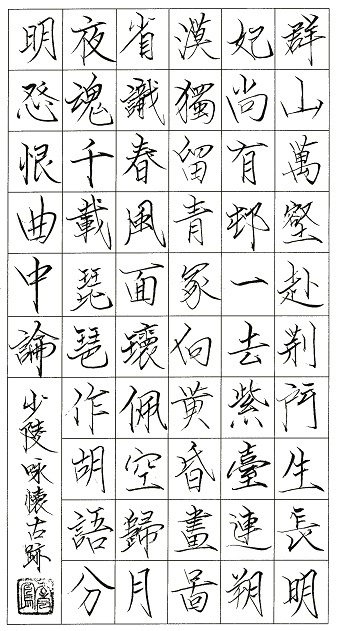 群山萬壑赴荆門生長明
妃尚有邨一去紫臺連朔
漠獨留青冢向黄昏畫啚
省識春風面環佩空歸月
夜魂千載琵琶作胡語分
明怨恨曲中論
少陵咏懷古跡